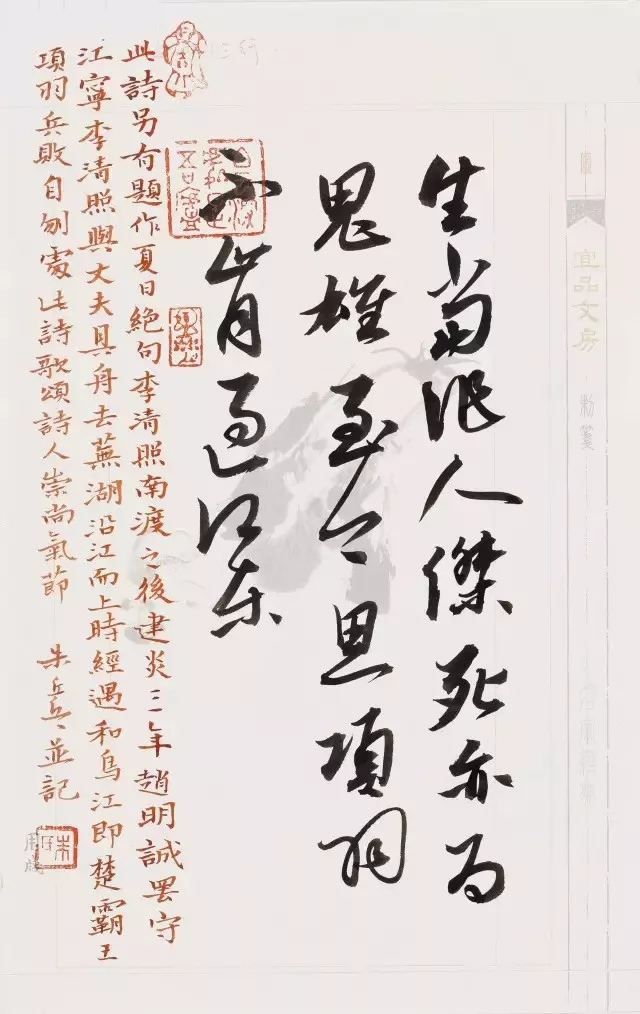 生當作人傑死亦為
鬼雄至今思項羽
不肯過江東
此詩另有題作夏日絕句李清照南渡之後建炎三年趙明誠罷守
江寧李清照與丈夫具舟去蕪湖沿江而上時經過和烏江即楚霸王
項羽兵敗自刎處此詩歌頌詩人崇尚氣節 朱兵並記
宜品文房